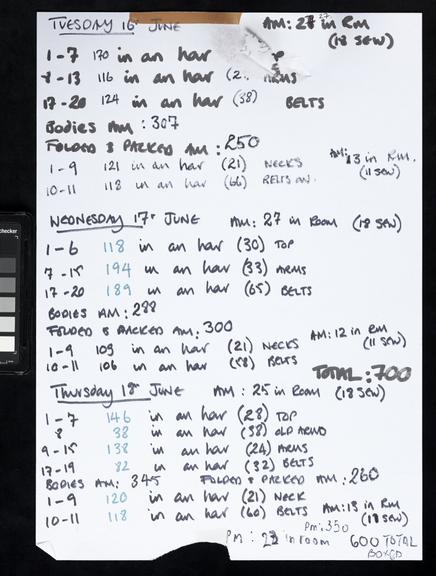 TUESDAY 16 JUNE AM: 27 in RM
(18 SEW)
1-7 170 in an har
8-13 116 in an har (2 ARMS
17-20 124 in an har (38) BELTS
BODIES AM: 307
FOLDED & PACKED AM: 250
AM: 13 in RM.
(11 SEW)
1-9 121 in an har (21) NECKS
10-11 118 in an har (66) BELTS
WEDNESDAY 17 JUNE AM: 27 in ROOM (18 SEW)
1-6 118 in an har (30) TOP
7-15 194 in an har (33) ARMS
17-20 189 in an har (65) BELTS
BODIES AM: 288
FOLDED & PACKED AM: 300
AM: 12 in RM
(11 SEW)
1-9 109 in an har (21) NECKS
10-11 106 in an har (58) BELTS
TOTAL: 700
Thursday 18 JUNE AM: 25 in ROOM (18 SEW)
1-7 146 in an har (28) TOP
8 38 in an har (38) OLD
9-15 138 in an har (24) ARMS
17-19 82 in an har (32) BELTS
BODIES AM: 345 FOLDED & PACKED AM: 260
1-9 120 in an har (21) NECK
10-11 118 in an har (60) BELTS AM: 13 in RM
(18 SEW)
Pm: 350
Pm: 23 in room 600 TOTAL
BOXED